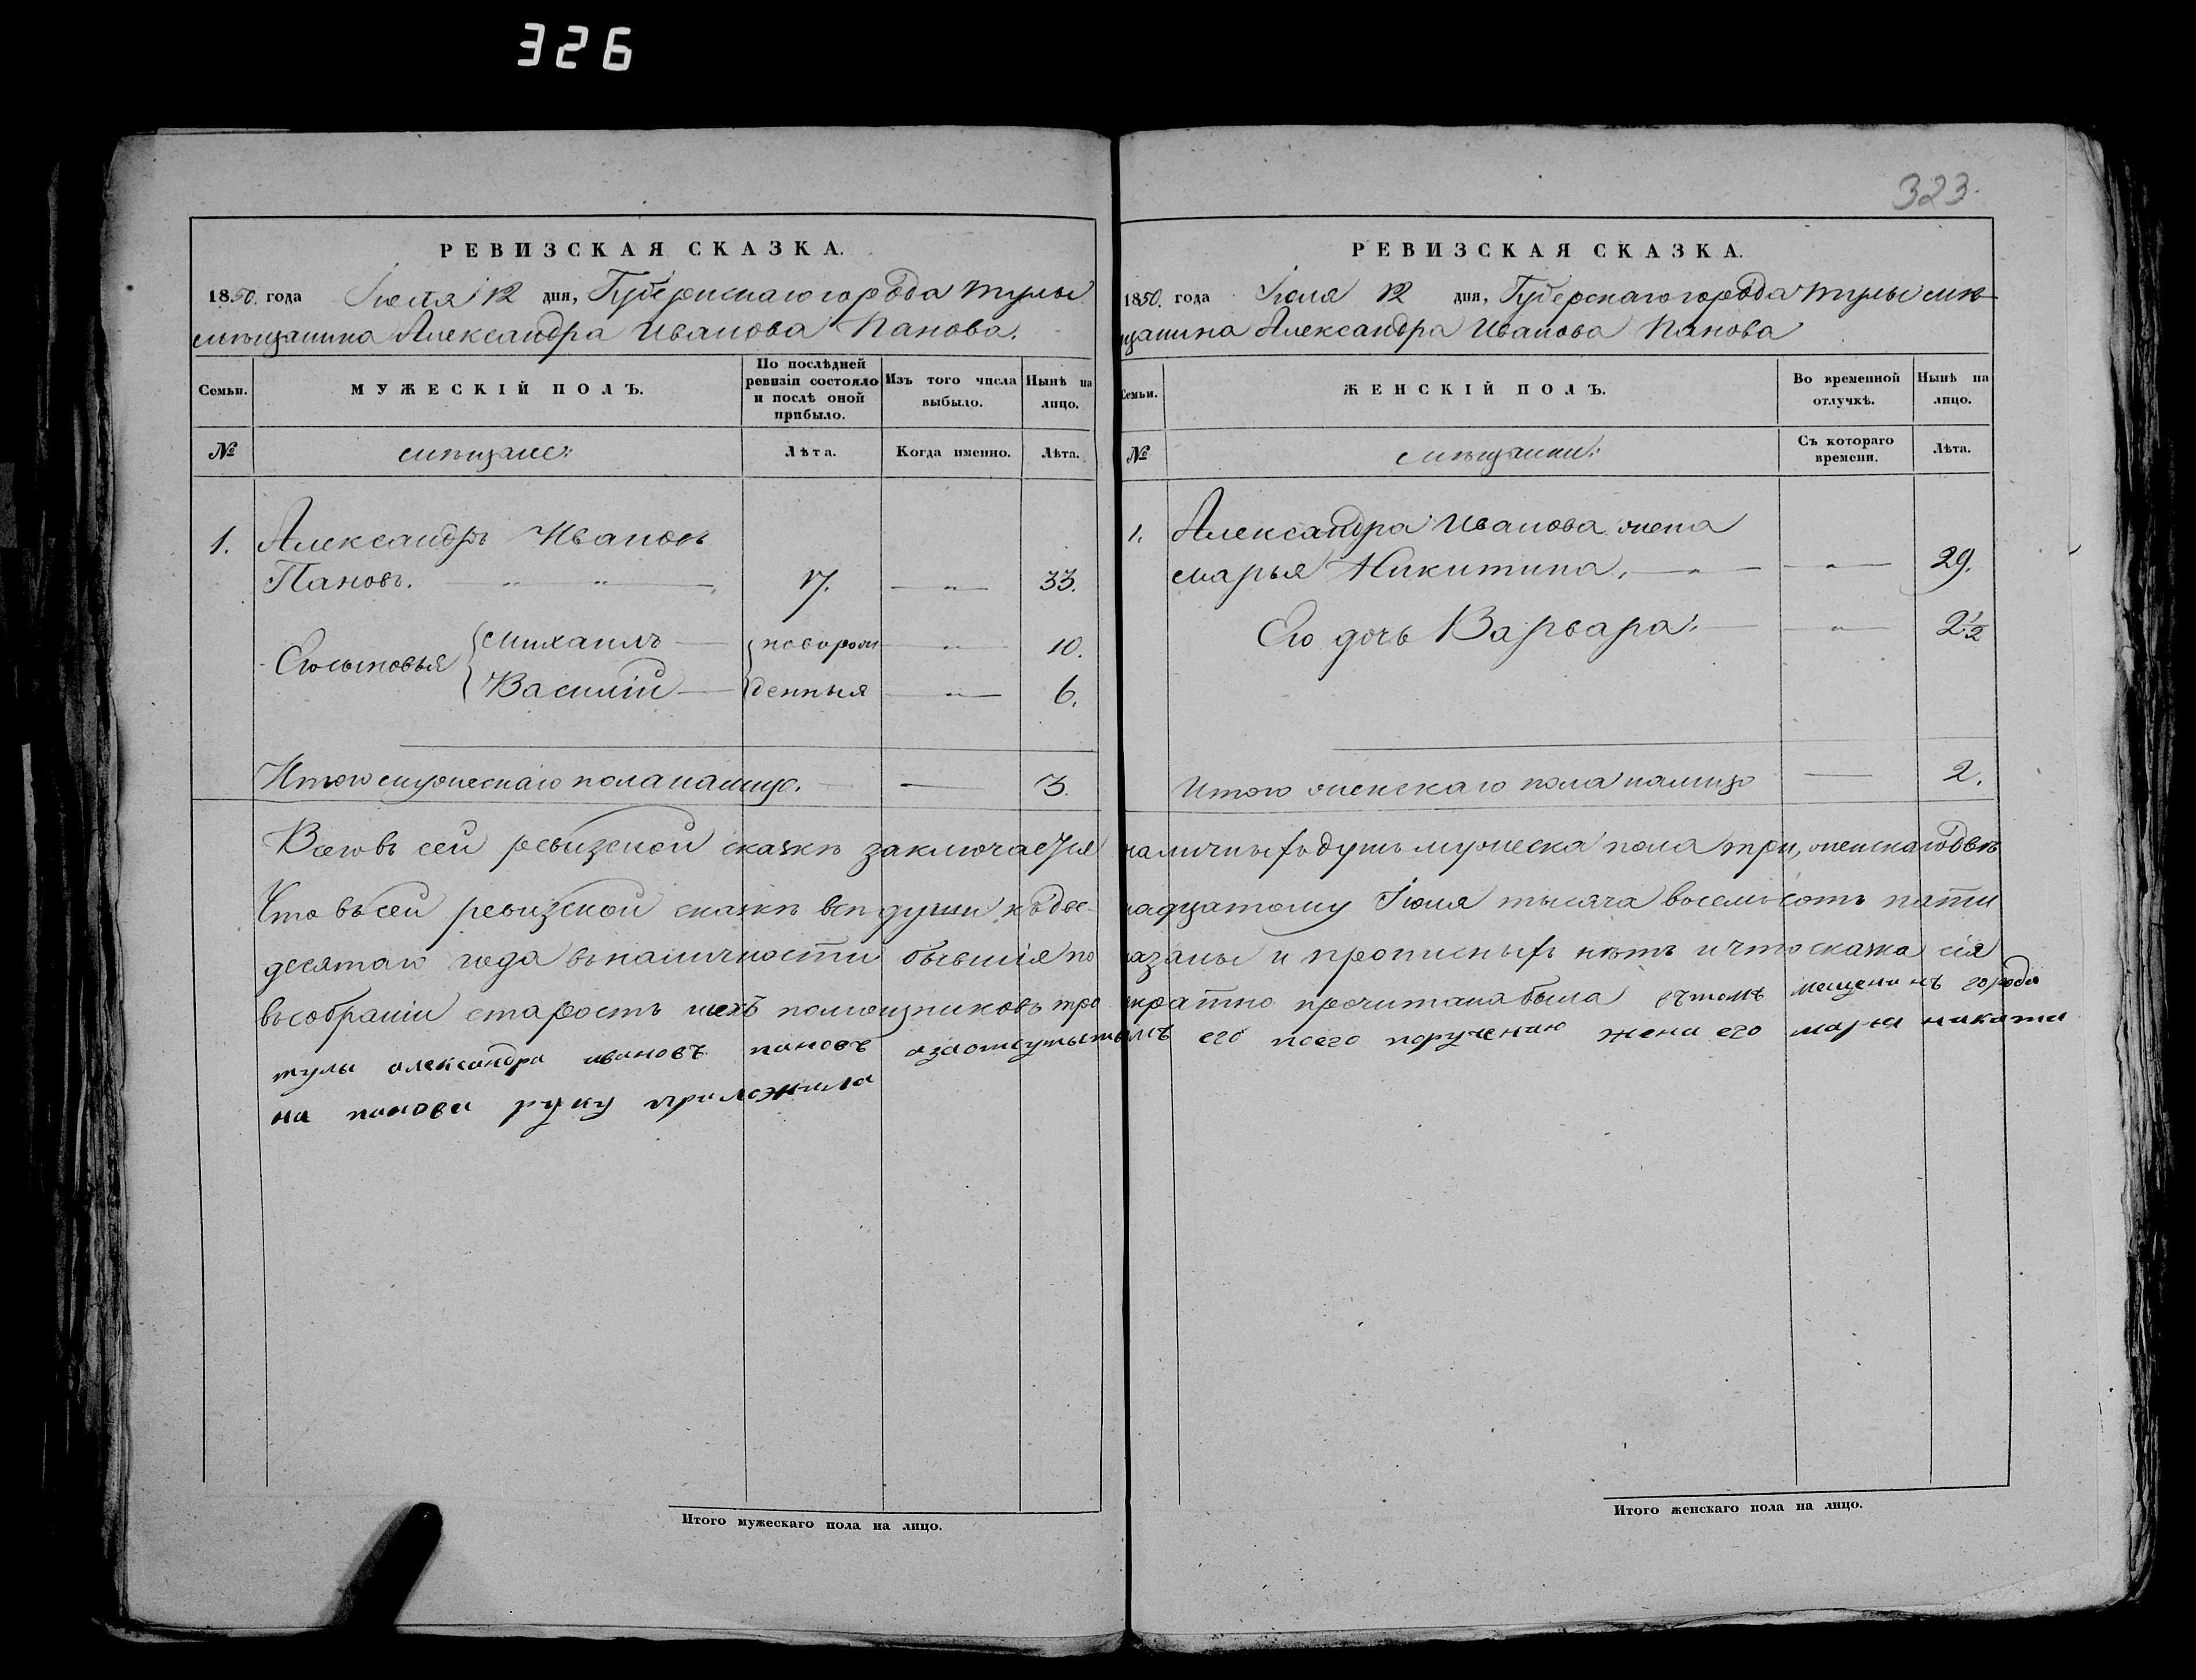 326
323.
РЕВИЗСКАЯ СКАЗКА.
1850. года Іюля 12 дня, Губернскаго города Тулы
мѣщанина Александра Иванова Панова.
Семьи.
МУЖЕСКІЙ ПОЛЪ.
По послѣдней ревизіи состояло и послѣ оной прибыло.
Изъ того числа выбыло.
Нынѣ на лицо.
№
мѣщане:
Лѣта.
Когда именно.
Лѣта.
1. Александръ Ивановъ
Пановъ. — „ — „ — 17. — „ — 33.
Его сыновья { Михаилъ — { новорож — „ — 10.
{ Василій — { денныя — „ — 6.
Итого мужескаго пола налицо. — — 3.
РЕВИЗСКАЯ СКАЗКА.
1850. года Іюля 12 дня, Губерскаго города Тулы мѣ-
щанина Александра Иванова Панова
Семьи.
ЖЕНСКІЙ ПОЛЪ.
Во временной отлучкѣ.
Нынѣ на лицо.
№
мѣщанки:
Съ котораго времени.
Лѣта.
1. Александра Иванова жена
Марья Никитина, — „ — — „ — 29.
Его дочь Варвара: — — „ — 2 1/2
Итого женскаго пола налицо — 2.
Всего въ сей ревизской сказкѣ заключается наличныхъ душъ мужеска пола три, женскаго двѣ
Что въ сей ревизской сказкѣ всѣ души, къ двѣ-надцатому Іюля тысяча восемьсотъ пяти
десятаго года въ наличности бывшія показаны и прописныхъ нѣтъ и что сказка сія
въ собраніи старостъ ихъ помощниковъ троекратно прочитана была вътомъ мещенинъ города
тулы александра ивановъ пановъ азаотсутытвимъ его поего порученію жена его марья никити
на панова руку приложила
Итого мужескаго пола на лицо.
Итого женскаго пола на лицо.